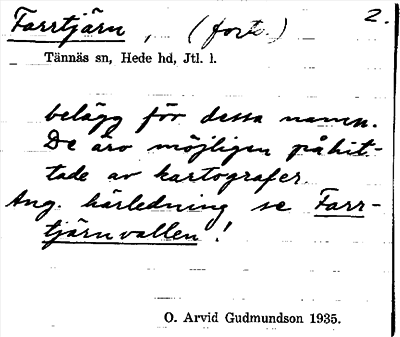 Farrtjärn, (forts.) 2.
Tännäs sn, Hede hd, Jtl. l.
belägg för dessa namn.
De äro möjligen påhit-
tade av kartografer.
Ang. härledning se Farr-
tjärnvallen!
O. Arvid Gudmundson 1935.